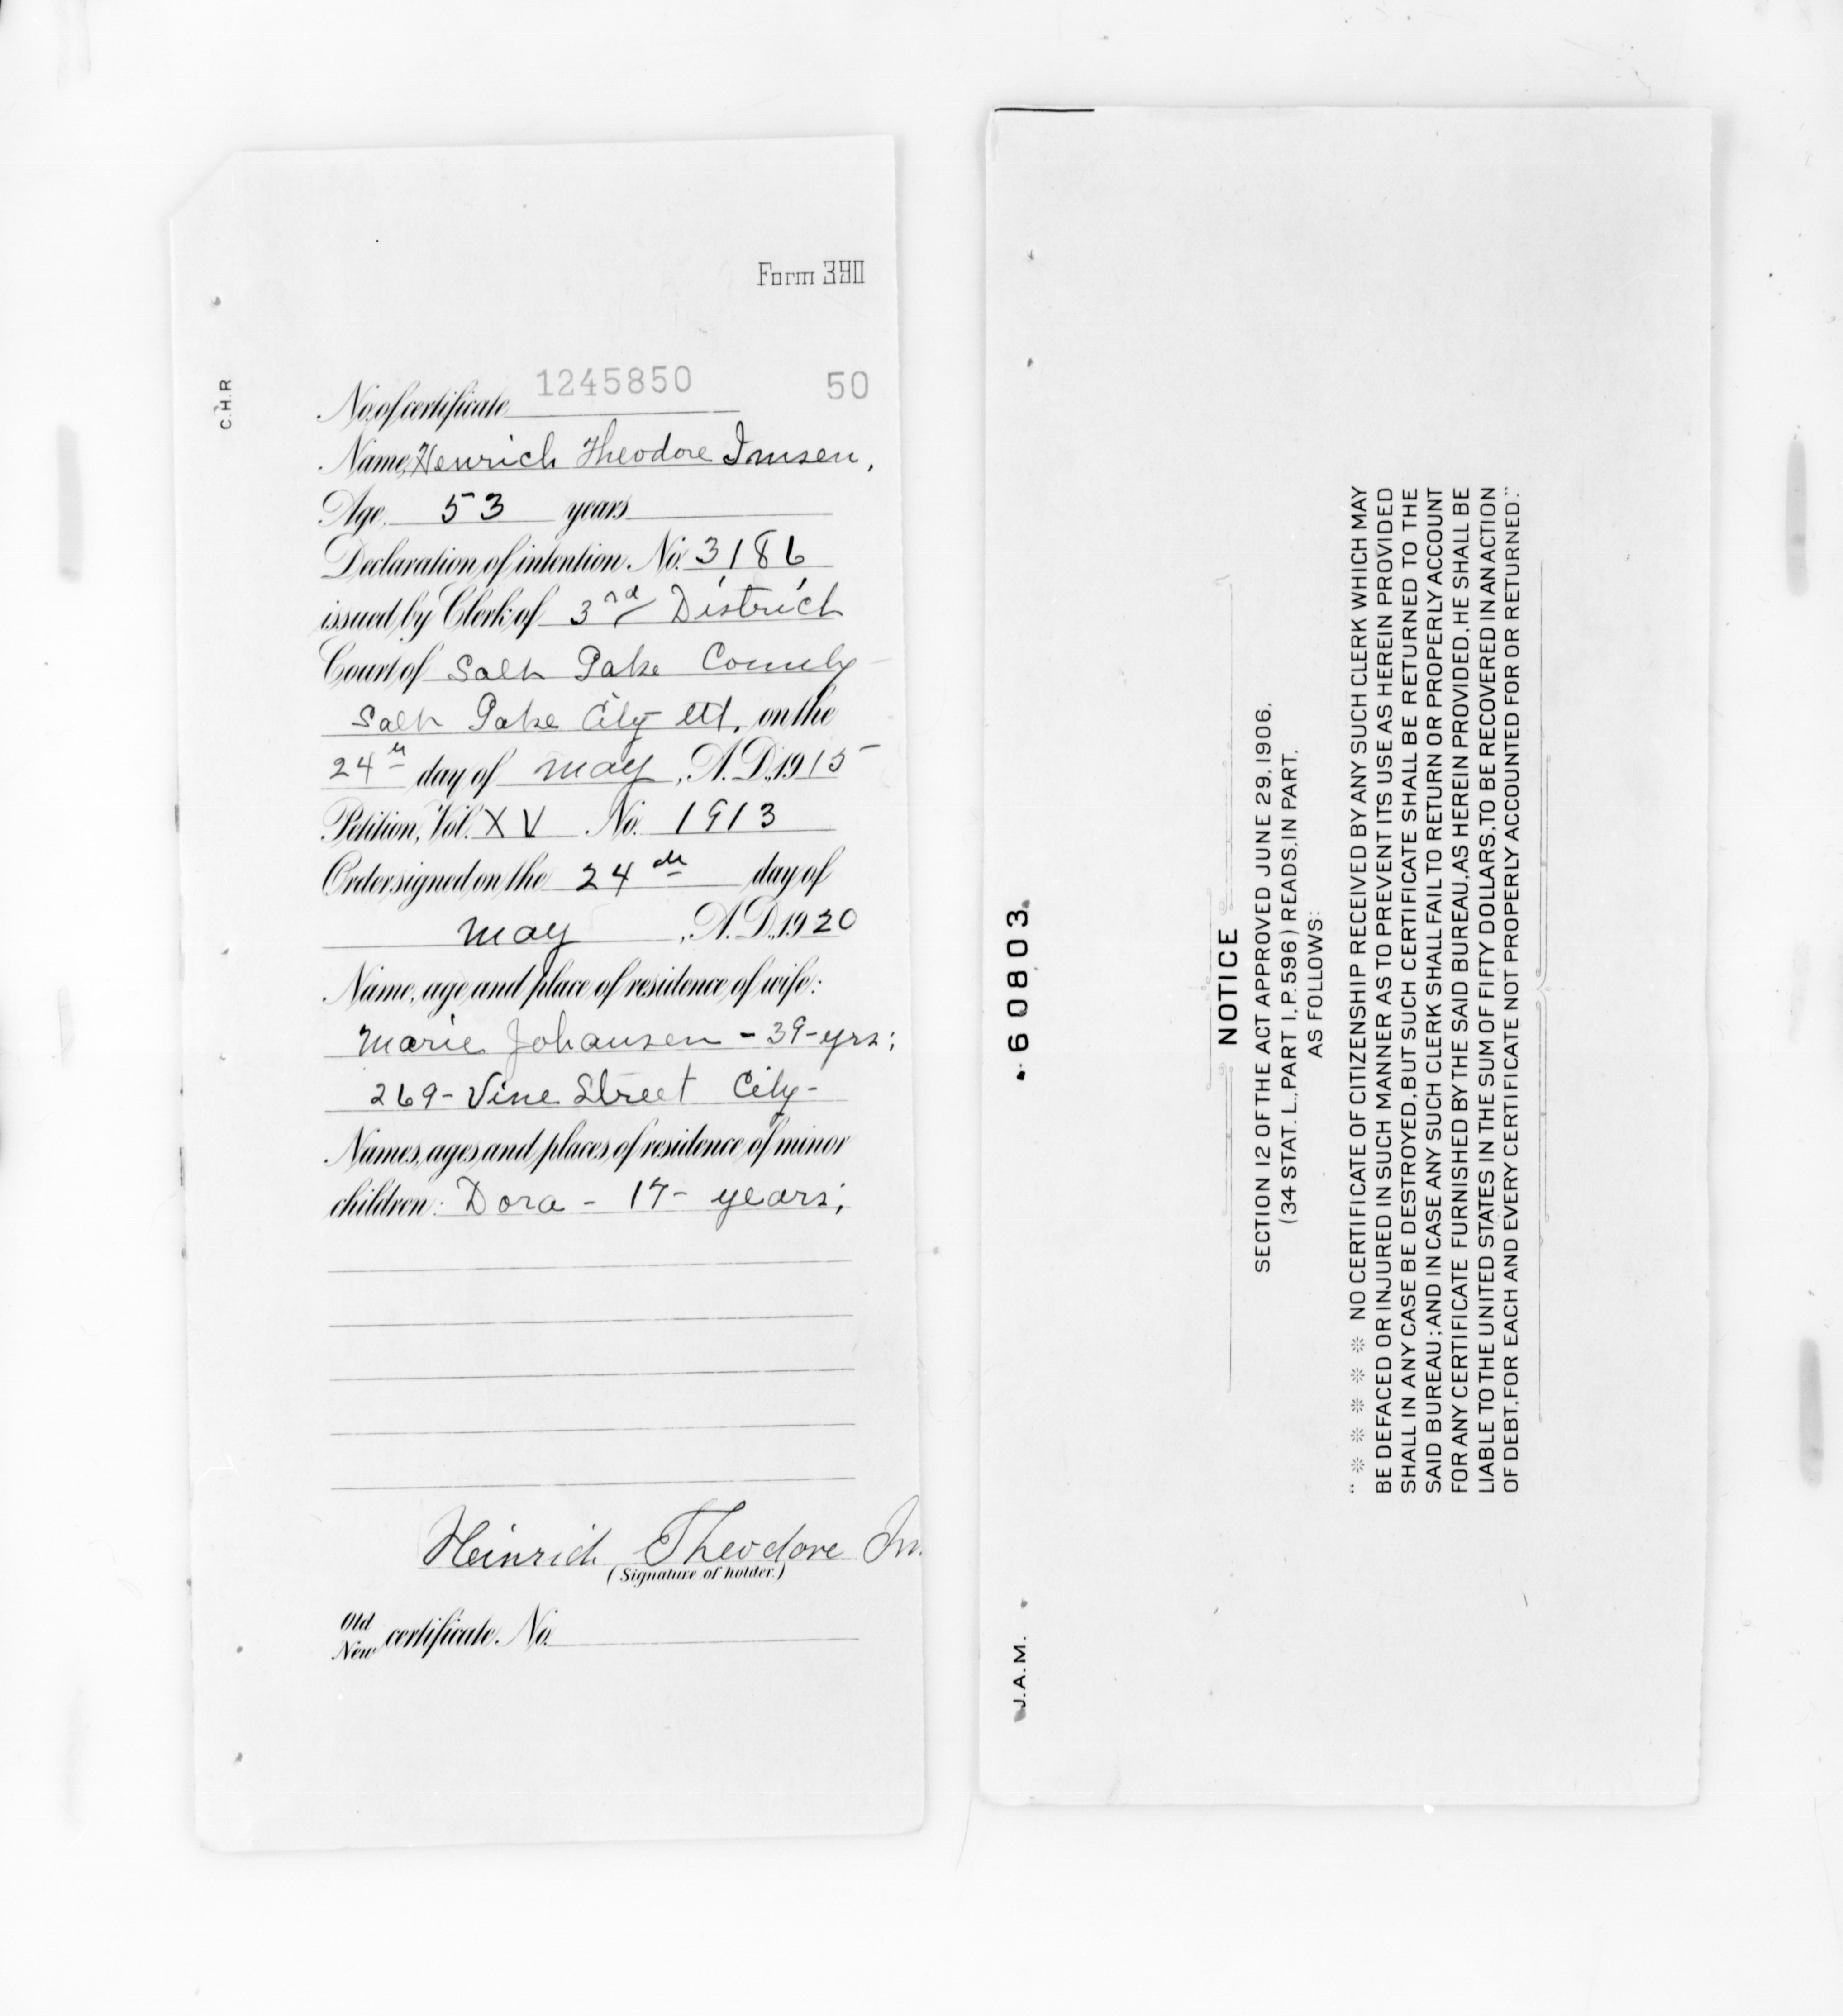 Form 390
C.H.R
No. of certificate 1245850 50
Name, Henrich Theodore Imsen,
Age, 53 years
Declaration of intention. No. 3186
issued by Clerk of 3rd District
Court of Salt Lake County
Salt Lake City Ut, on the
24th day of May, A.D., 1915
Petition, Vol. XV No. 1913
Order signed on the 24th day of
May, A.D., 1920
Name, age and place of residence of wife:
Marie Johansen - 39-yrs;
269- Vine Street City-
Names, ages and places of residence of minor
children: Dora - 17- years;
Heinrich Theodore Im
(Signature of holder.)
Old
New certificate. No.
60803
J.A.M.
NOTICE
SECTION 12 OF THE ACT APPROVED JUNE 29, 1906,
(34 STAT. L., PART I, P. 596) READS, IN PART,
AS FOLLOWS:
" * * * * * NO CERTIFICATE OF CITIZENSHIP RECEIVED BY ANY SUCH CLERK WHICH MAY
BE DEFACED OR INJURED IN SUCH MANNER AS TO PREVENT ITS USE AS HEREIN PROVIDED
SHALL IN ANY CASE BE DESTROYED, BUT SUCH CERTIFICATE SHALL BE RETURNED TO THE
SAID BUREAU; AND IN CASE ANY SUCH CLERK SHALL FAIL TO RETURN OR PROPERLY ACCOUNT
FOR ANY CERTIFICATE FURNISHED BY THE SAID BUREAU, AS HEREIN PROVIDED, HE SHALL BE
LIABLE TO THE UNITED STATES IN THE SUM OF FIFTY DOLLARS, TO BE RECOVERED IN AN ACTION
OF DEBT, FOR EACH AND EVERY CERTIFICATE NOT PROPERLY ACCOUNTED FOR OR RETURNED."